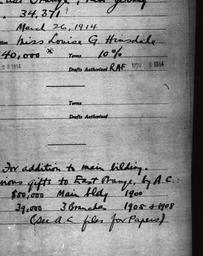 East Orange, New Jersey
34,371
March 26, 1914
Miss Louise G. Hinsdale
40,000 x Terms 10%
1914 Drafts Authorized RAF NOV 1914
Terms
Drafts Authorized
For addition to main bilding.
ious gifts to East Orange, by A.C.:
$50,000 Main bldg 1900
39,000 3 Branches 1905 & 1908
(See A C files for Papers)